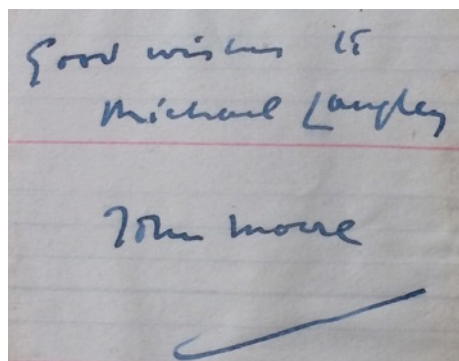 Good wishes to
Michael Langley
John Moore